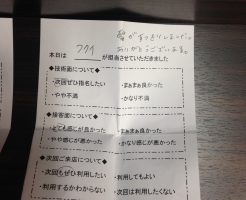 髪がすっきりしました。
ありがとうございます。
本日は
が担当させていただきました
◆技術面について◆
・次回ぜひ指名したい
・まぁまぁ良かった
・やや不満
・かなり不満
◆接客面について◆
・とても感じが良かった
・まぁまぁ良かった
・やや感じが悪かった
・かなり感じが悪かった
◆次回ご来店について◆
・次回もぜひ利用したい
・利用してもよい
・利用するかわからない
・次回は利用したくない